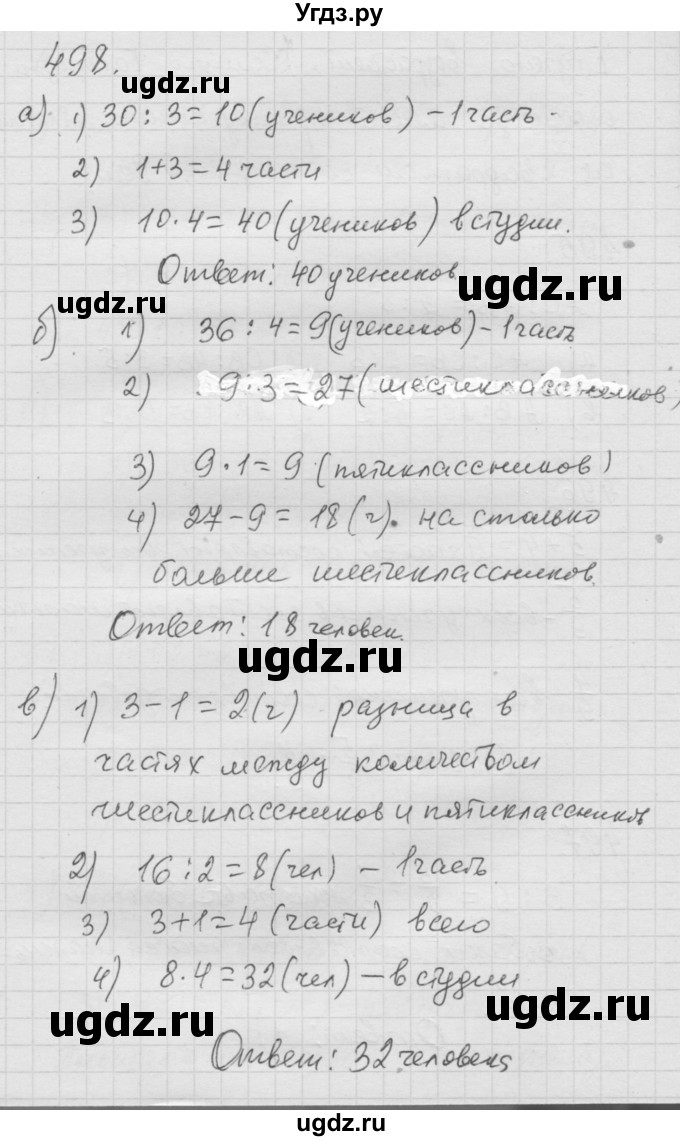 Угдз.ру
498.
ugdz.ru
ugdz.ru
а) 1) 30 : 3 = 10 (учеников) – 1 часть.
2) 1+3 = 4 части
3) 10·4 = 40 (учеников) в студии.
Ответ: 40 учеников
ugdz.ru
ugdz.ru
б) 1) 36 : 4 = 9 (учеников) – 1 часть
2) 9 : 3 = 27 (шестиклассников)
3) 9·1 = 9 (пятиклассников)
4) 27 – 9 = 18 (ч). на столько
больше шестиклассников.
Ответ: 18 человек.
ugdz.ru
в) 1) 3 – 1 = 2 (ч) разница в
частях между количеством
шестиклассников и пятиклассников
2) 16 : 2 = 8 (чел) – 1 часть
3) 3+1 = 4 (части) всего
4) 8·4 = 32 (чел) – в студии
ugdz.ru
ugdz.ru
Ответ: 32 человека
ugdz.ru